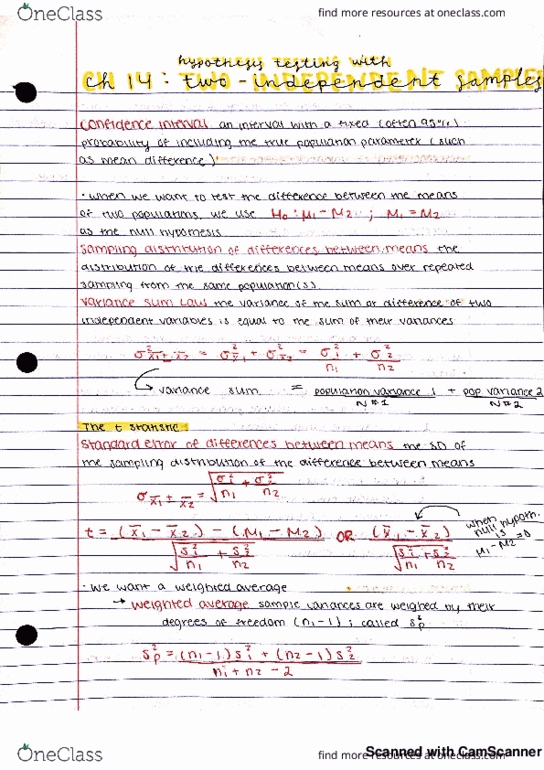 OneClass
find more resources at oneclass.com
hypothesis testing with
Ch 14: TWO-INDEPENDENT samples
Confidence interval an interval with a fixed (often 95%)
probability of including the true population parameter (such
as mean difference)
· when we want to test the difference between the means
of two populations, we use H₀: M₁ - M₂ ; M₁ = M₂
as the null hypothesis
Sampling distribution of differences between means the
distribution of the differences between means over repeated
sampling from the same population(s).
Variance Sum Law the variance of the sum or difference of two
independent variables is equal to the sum of their variances
σ²x̄₁±x̄₂ = σ²x̄₁ + σ²x̄₂ = σ₁²/n₁ + σ₂²/n₂
variance sum = population variance 1/N#1 + pop variance 2/N#2
The t statistic:
Standard error of differences between means the SD of
the sampling distribution of the difference between means
σx̄₁±x̄₂ = √σ₁²/n₁ + σ₂²/n₂
t = (x̄₁ - x̄₂) - (M₁ - M₂)/√s₁²/n₁ + s₂²/n₂ OR (x̄₁ - x̄₂)/√s₁²/n₁ + s₂²/n₂
when
null hypoth.
is
M₁ - M₂ = 0
· we want a weighted average
→ weighted average sample variances are weighed by their
degrees of freedom (n₁-1); called s²p
s²p = (n₁-1)s₁² + (n₂-1)s₂²/n₁ + n₂ - 2
OneClass
find more resources at oneclass.com
Scanned with CamScanner